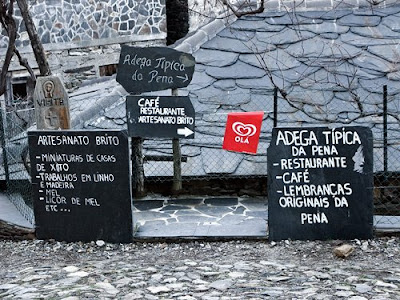 Adega Típica
da Pena
CAFÉ
RESTAURANTE
ARTESANATO BRITO
OLÁ
ARTESANATO BRITO
- MINIATURAS DE CASAS
DE XISTO
- TRABALHOS EM LINHO
E MADEIRA
- MEL
- LICOR DE MEL
ETC...
ADEGA TÍPICA
DA PENA
- RESTAURANTE
- CAFÉ
- LEMBRANÇAS
ORIGINAIS DA
PENA